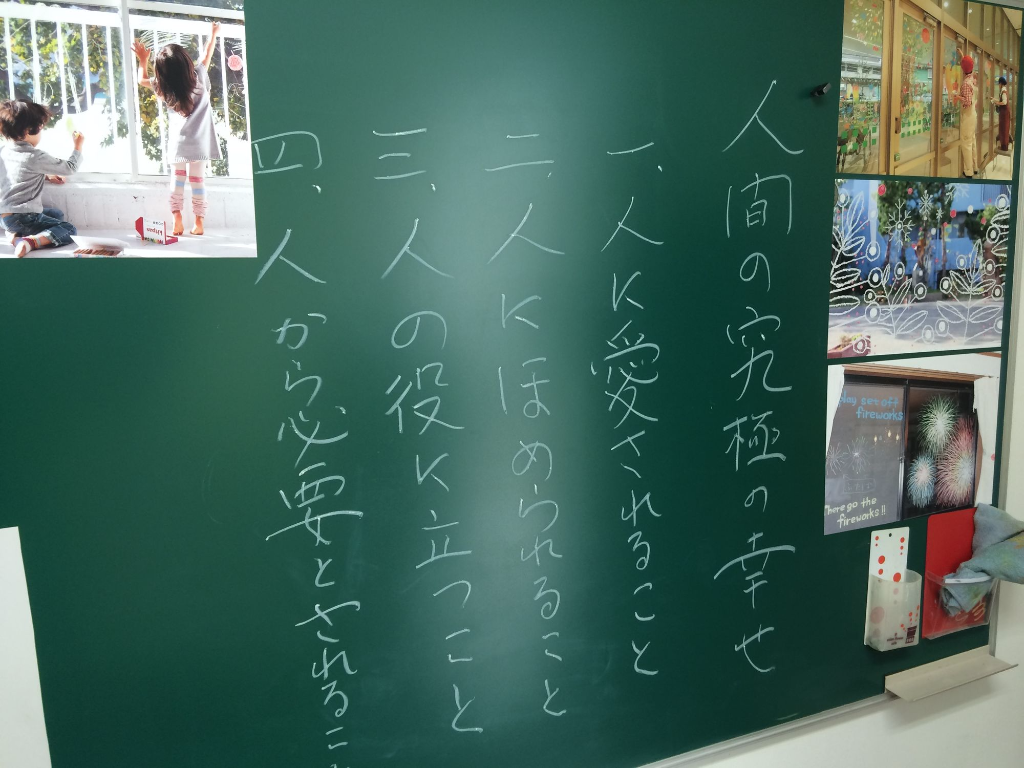 人間の究極の幸せ
一、人に愛されること
二、人にほめられること
三、人の役に立つこと
四、人から必要とされるこ
play set off
fireworks
here go the
fireworks!!
kitpas